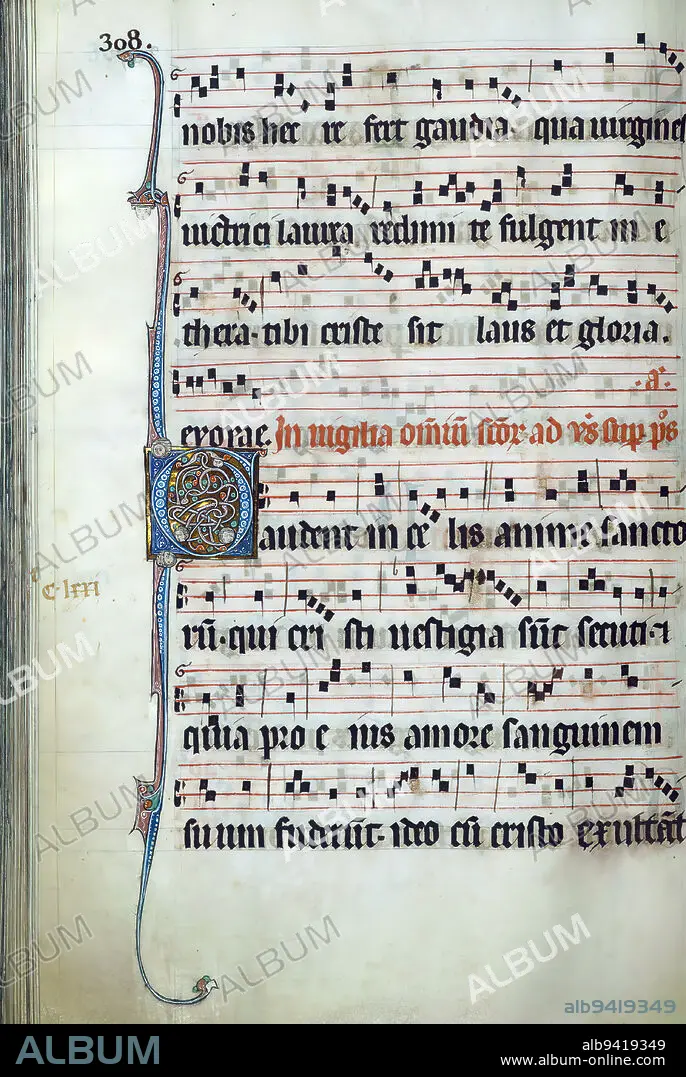 308.
nobis hec re fert gaudia qua uirgines
uictrici laurea redimi te fulgent in e
thera. tibi criste sit laus et gloria.
.a.
evovae. In uigilia om̄iū scōꝝ ad vs̄ sup ps̄
Gaudent in ce lis anime sancto
Clxxi
rū. qui cri sti uestigia sūt secuti. ⁊
quia pro e ius amore sanguinem
su um fuderūt. ideo cū cristo exultāt
ALBUM
alb9419349
ALBUM
alb9419349
www.album-online.com